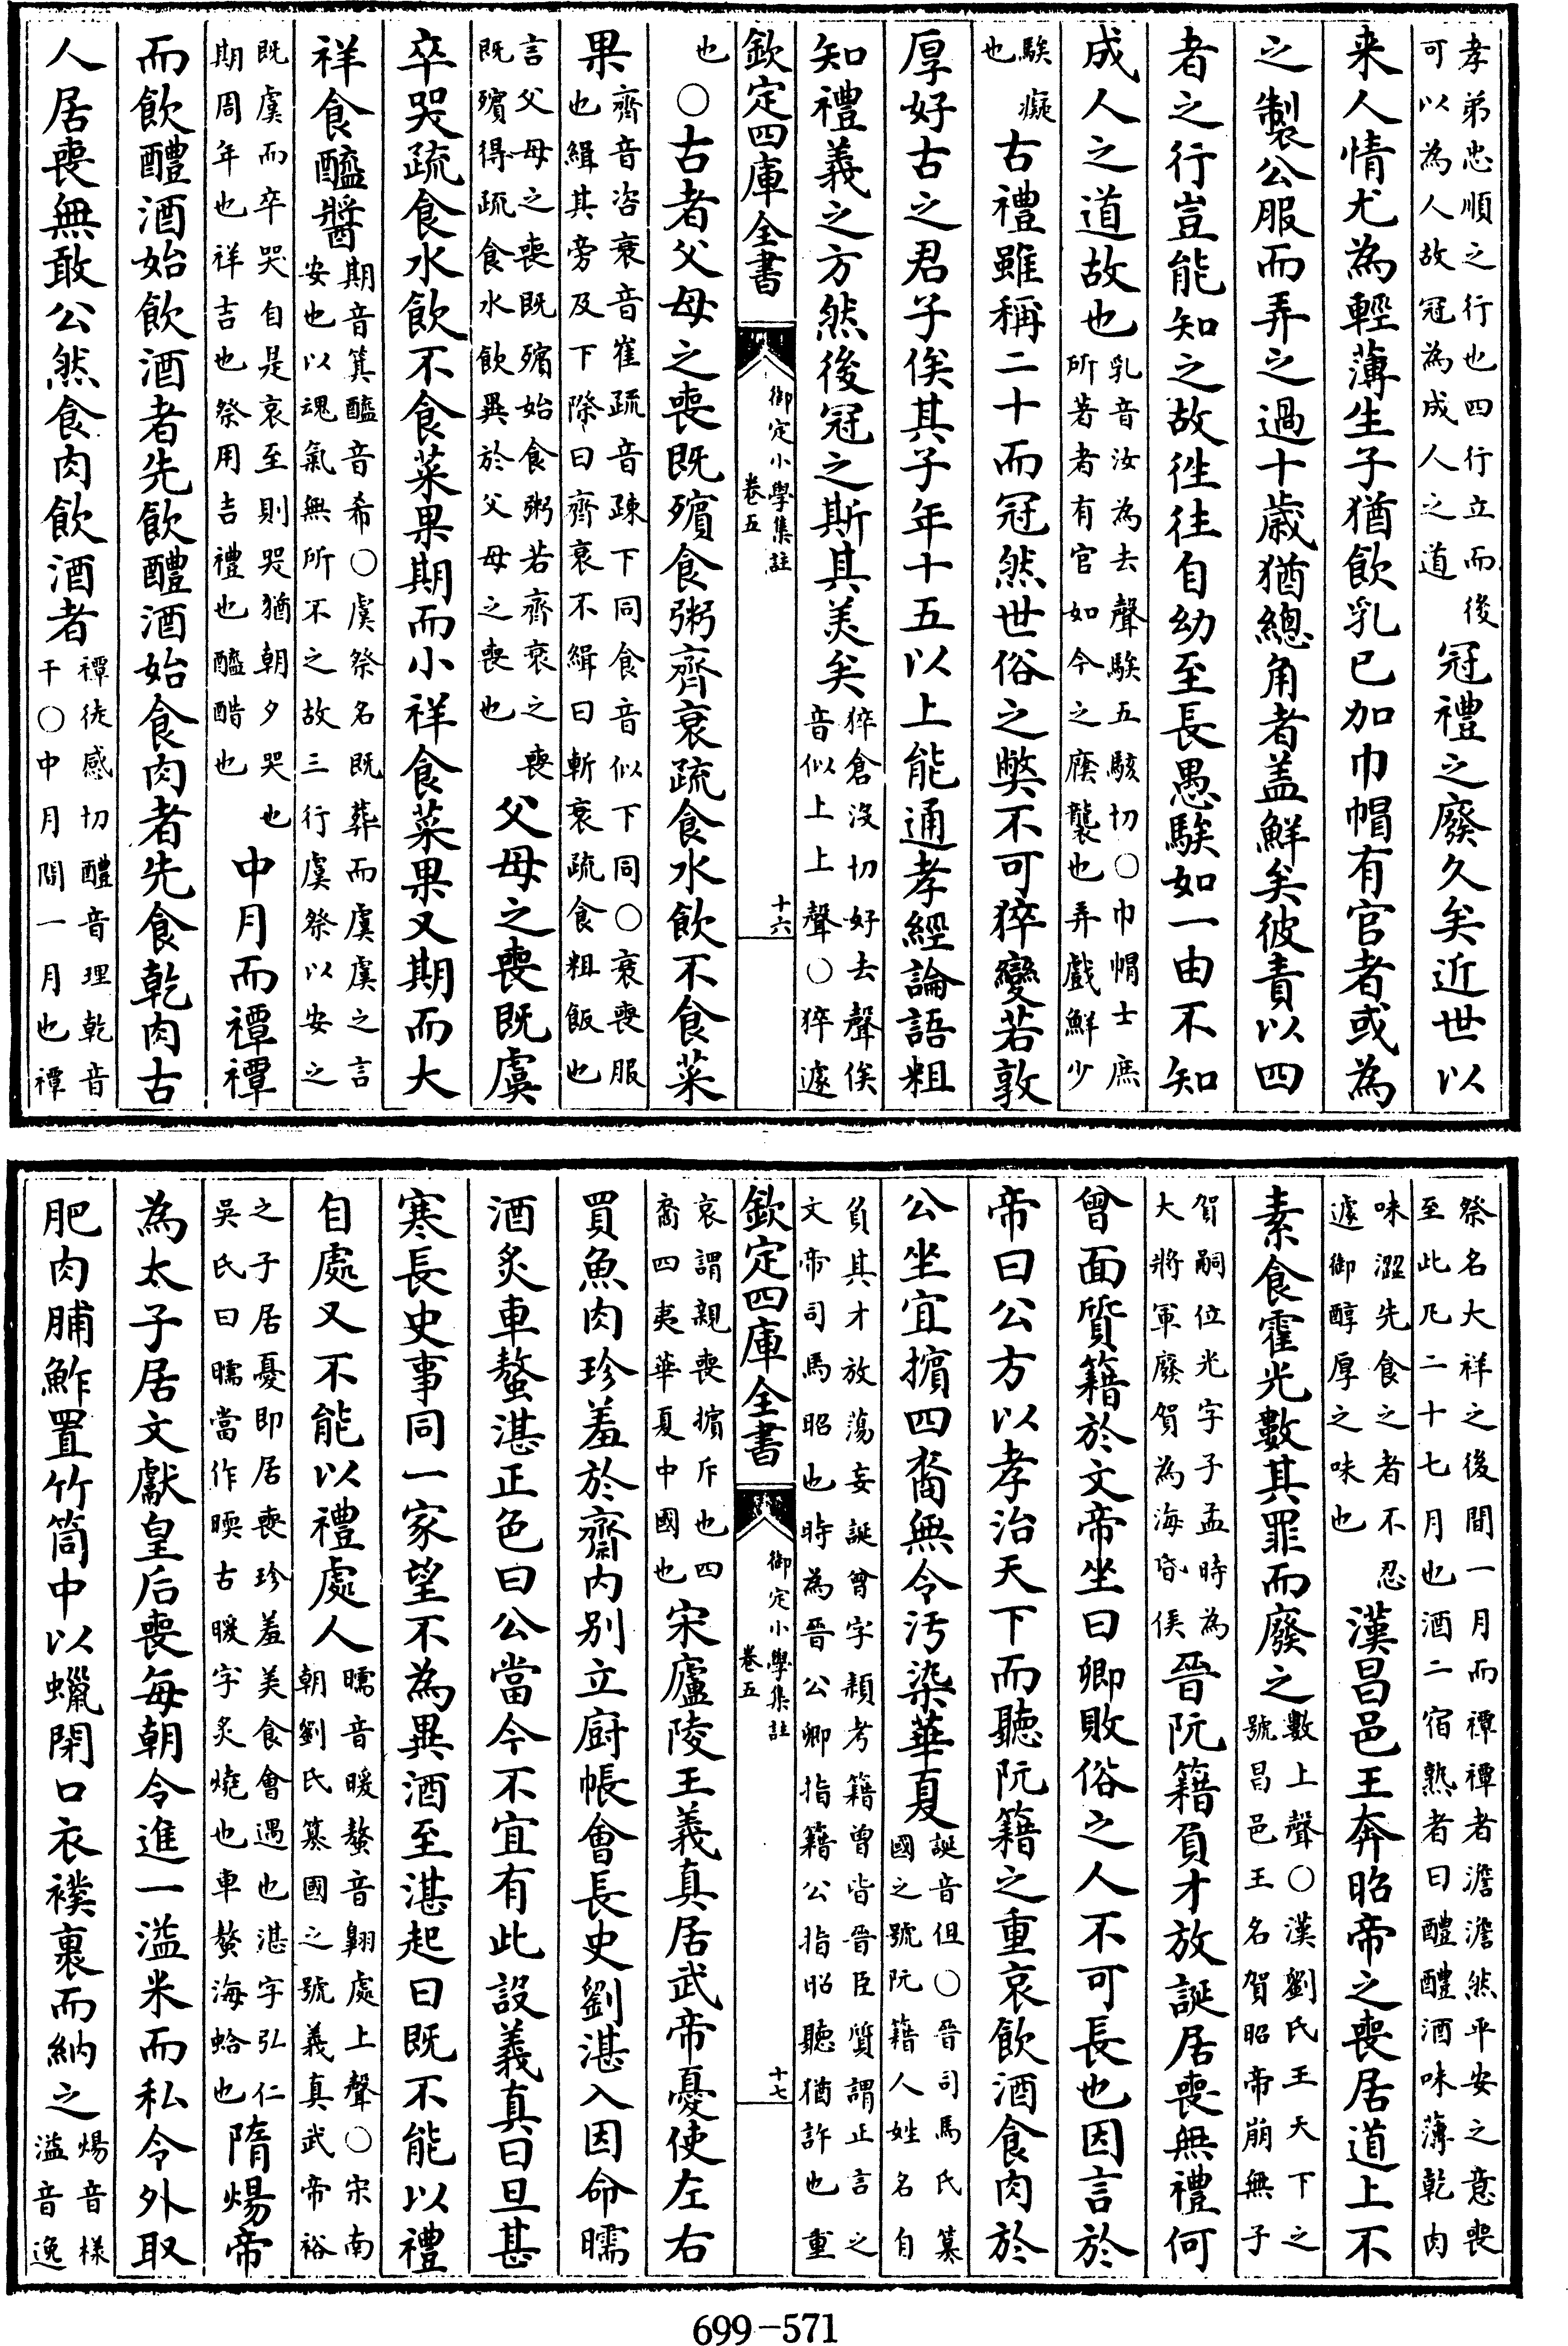 孝弟忠順之行也四行立而後
可以為人故冠為成人之道
冠禮之廢久矣近世以
来人情尤為輕薄生子猶飲乳已加巾帽有官者或為
之製公服而弄之過十歳猶總角者盖鮮矣彼責以四
者之行豈能知之故徃徃自幼至長愚騃如一由不知
成人之道故也
乳音汝為去聲騃五駭切○巾帽士庶
所著者有官如今之廕襲也弄戲鮮少
騃癡
也
古禮雖稱二十而冠然世俗之弊不可猝變若敦
厚好古之君子俟其子年十五以上能通孝經論語粗
知禮義之方然後冠之斯其美矣
猝倉没切好去聲俟
音似上上聲○猝遽
欽定四庫全書
御定小學集註
卷五
十六
也
○古者父母之喪既殯食粥齊衰疏食水飲不食菜
果
齊音咨衰音崔疏音疎下同食音似下同○衰喪服
也緝其旁及下際曰齊衰不緝曰斬衰疏食粗飯也
言父母之喪既殯始食粥若齊衰之喪
既殯得疏食水飲異於父母之喪也
父母之喪既虞
卒哭疏食水飲不食菜果期而小祥食菜果又期而大
祥食醯醬
期音箕醯音希○虞祭名既葬而虞虞之言
安也以魂氣無所不之故三行虞祭以安之
既虞而卒哭自是哀至則哭猶朝夕哭也
期周年也祥吉也祭用吉禮也醯醋也
中月而禫禫
而飲醴酒始飲酒者先飲醴酒始食肉者先食乾肉古
人居喪無敢公然食肉飲酒者
禫徒感切醴音理乾音
干○中月間一月也禫
祭名大祥之後間一月而禫禫者澹澹然平安之意喪
至此凡二十七月也酒二宿熟者曰醴醴酒味薄乾肉
味澀先食之者不忍
遽御醇厚之味也
漢昌邑王奔昭帝之喪居道上不
素食霍光數其罪而廢之
數上聲○漢劉氏王天下之
號昌邑王名賀昭帝崩無子
賀嗣位光字子孟時為
大將軍廢賀為海昏侯
晉阮籍負才放誕居喪無禮何
曾面質籍於文帝坐曰卿敗俗之人不可長也因言於
帝曰公方以孝治天下而聽阮籍之重哀飲酒食肉於
公坐宜擯四裔無令汚染華夏
誕音但○晉司馬氏簒
國之號阮籍人姓名自
負其才放蕩妄誕曾字頴考籍曾皆晉臣質謂正言之
文帝司馬昭也時為晉公卿指籍公指昭聽猶許也重
欽定四庫全書
御定小學集註
卷五
十七
哀謂親喪擯斥也四
裔四夷華夏中國也
宋廬陵王義真居武帝憂使左右
買魚肉珍羞於齋内别立厨帳會長史劉湛入因命臑
酒炙車螯湛正色曰公當今不宜有此設義真曰旦甚
寒長史事同一家望不為異酒至湛起曰既不能以禮
自處又不能以禮處人
臑音暖螯音翺處上聲○宋南
朝劉氏簒國之號義真武帝裕
之子居憂即居喪珍羞美食會遇也湛字弘仁
吳氏曰臑當作㬉古暖字炙燒也車螯海蛤也
隋煬帝
為太子居文獻皇后喪每朝令進一溢米而私令外取
肥肉脯鮓置竹筒中以蠟閉口衣襆裹而納之
煬音樣
溢音逸
699-571